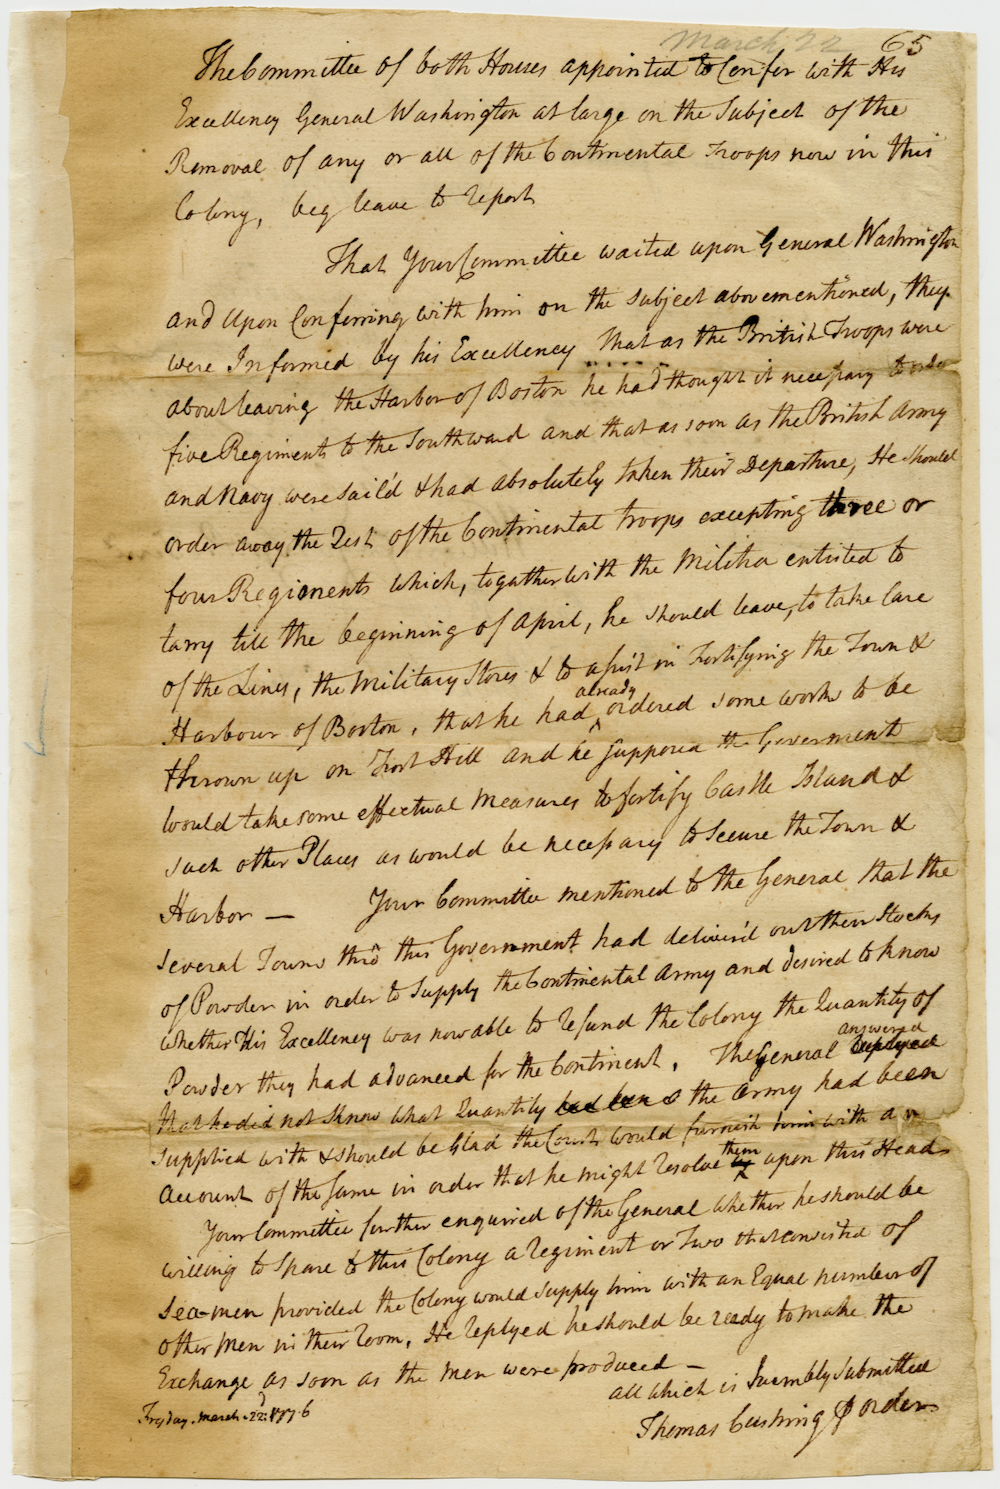 March 22 65
The Committee of both Houses appointed to Confer with His
Excellency General Washington at large on the Subject of the
Removal of any or all of the Continental Troops now in this
Colony, beg leave to report
That Your Committee waited upon General Washington
and upon Conferring with him on the subject abovementioned, they
were Informed by his Excellency that as the British Troops were
about leaving the Harbor of Boston he had thought it necessary to order
five Regiments to the Southward and that as soon as the British Army
and Navy were Sail'd & had absolutely taken their Departure, He should
order away the Rest of the Continental troops excepting three or
four Regiments which, together with the Militia enlisted to
tarry till the beginning of April, he should leave, to take Care
of the Lines, the Military Stores & to assist in Fortifying the Town &
already
Harbour of Boston, that he had ordered some works to be
thrown up on Fort Hill and he supposed the Goverment
would take some effectual Measures to fortify Castle Island &
such other Places as would be necessary to Secure the Town &
Harbor — Your Committee mentioned to the General that the
several Towns thrô this Government had deliver'd out their Stocks
of Powder in order to Supply the Continental Army and desired to know
whether His Excellency was now able to refund the Colony the Quantity of
answered
Powder they had advanced for the Continent. The General replyed
that he did not know what Quantity had been the Army had been
supplied with & should be Glad the Court would furnish him with an
them
Account of the same in order that he might resolve upon this Head
Your Committee further enquired of the General whether he should be
willing to Spare to this Colony a regiment or Two that consisted of
Sea-men provided the Colony would supply him with an Equal number of
other Men in their Room, He replyed he should be ready to make the
Exchange as soon as the men were produced —
all which is Huembly Submitted
Fryday. march. 22d. 1776
Thomas Cushing ⅌ order